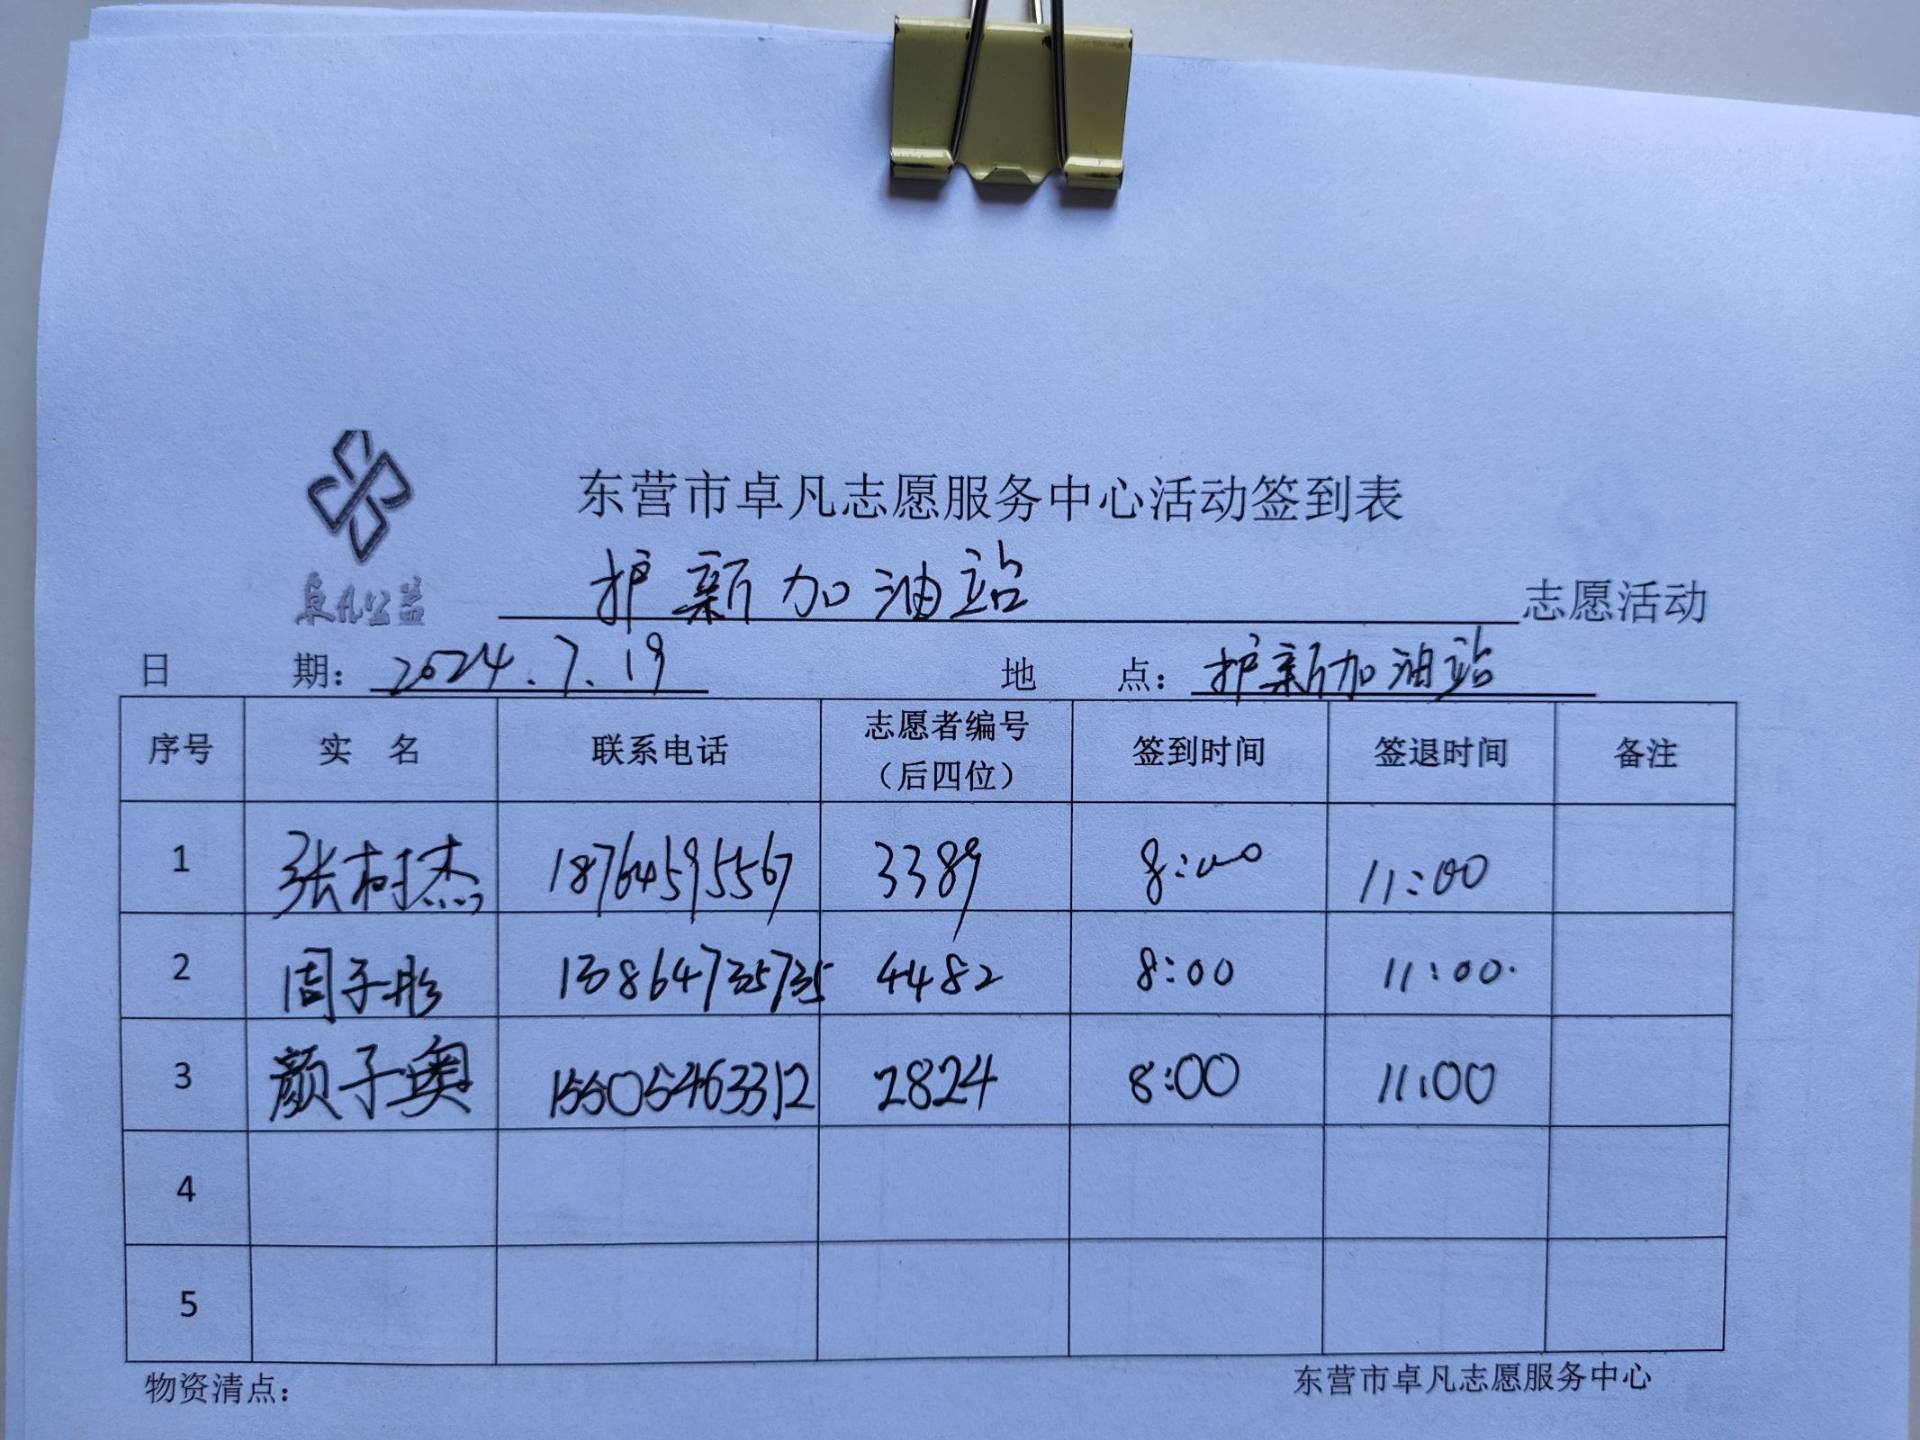 东营市卓凡志愿服务中心活动签到表
卓凡公益
护新加油站 志愿活动
日 期：2024.7.19 地 点：护新加油站
序号 实 名 联系电话 志愿者编号（后四位） 签到时间 签退时间 备注
1 张树杰 18764595567 3389 8:00 11:00
2 周子彤 13864735735 4482 8:00 11:00.
3 颜子奥 15505463312 2824 8:00 11:00
4
5
物资清点： 东营市卓凡志愿服务中心